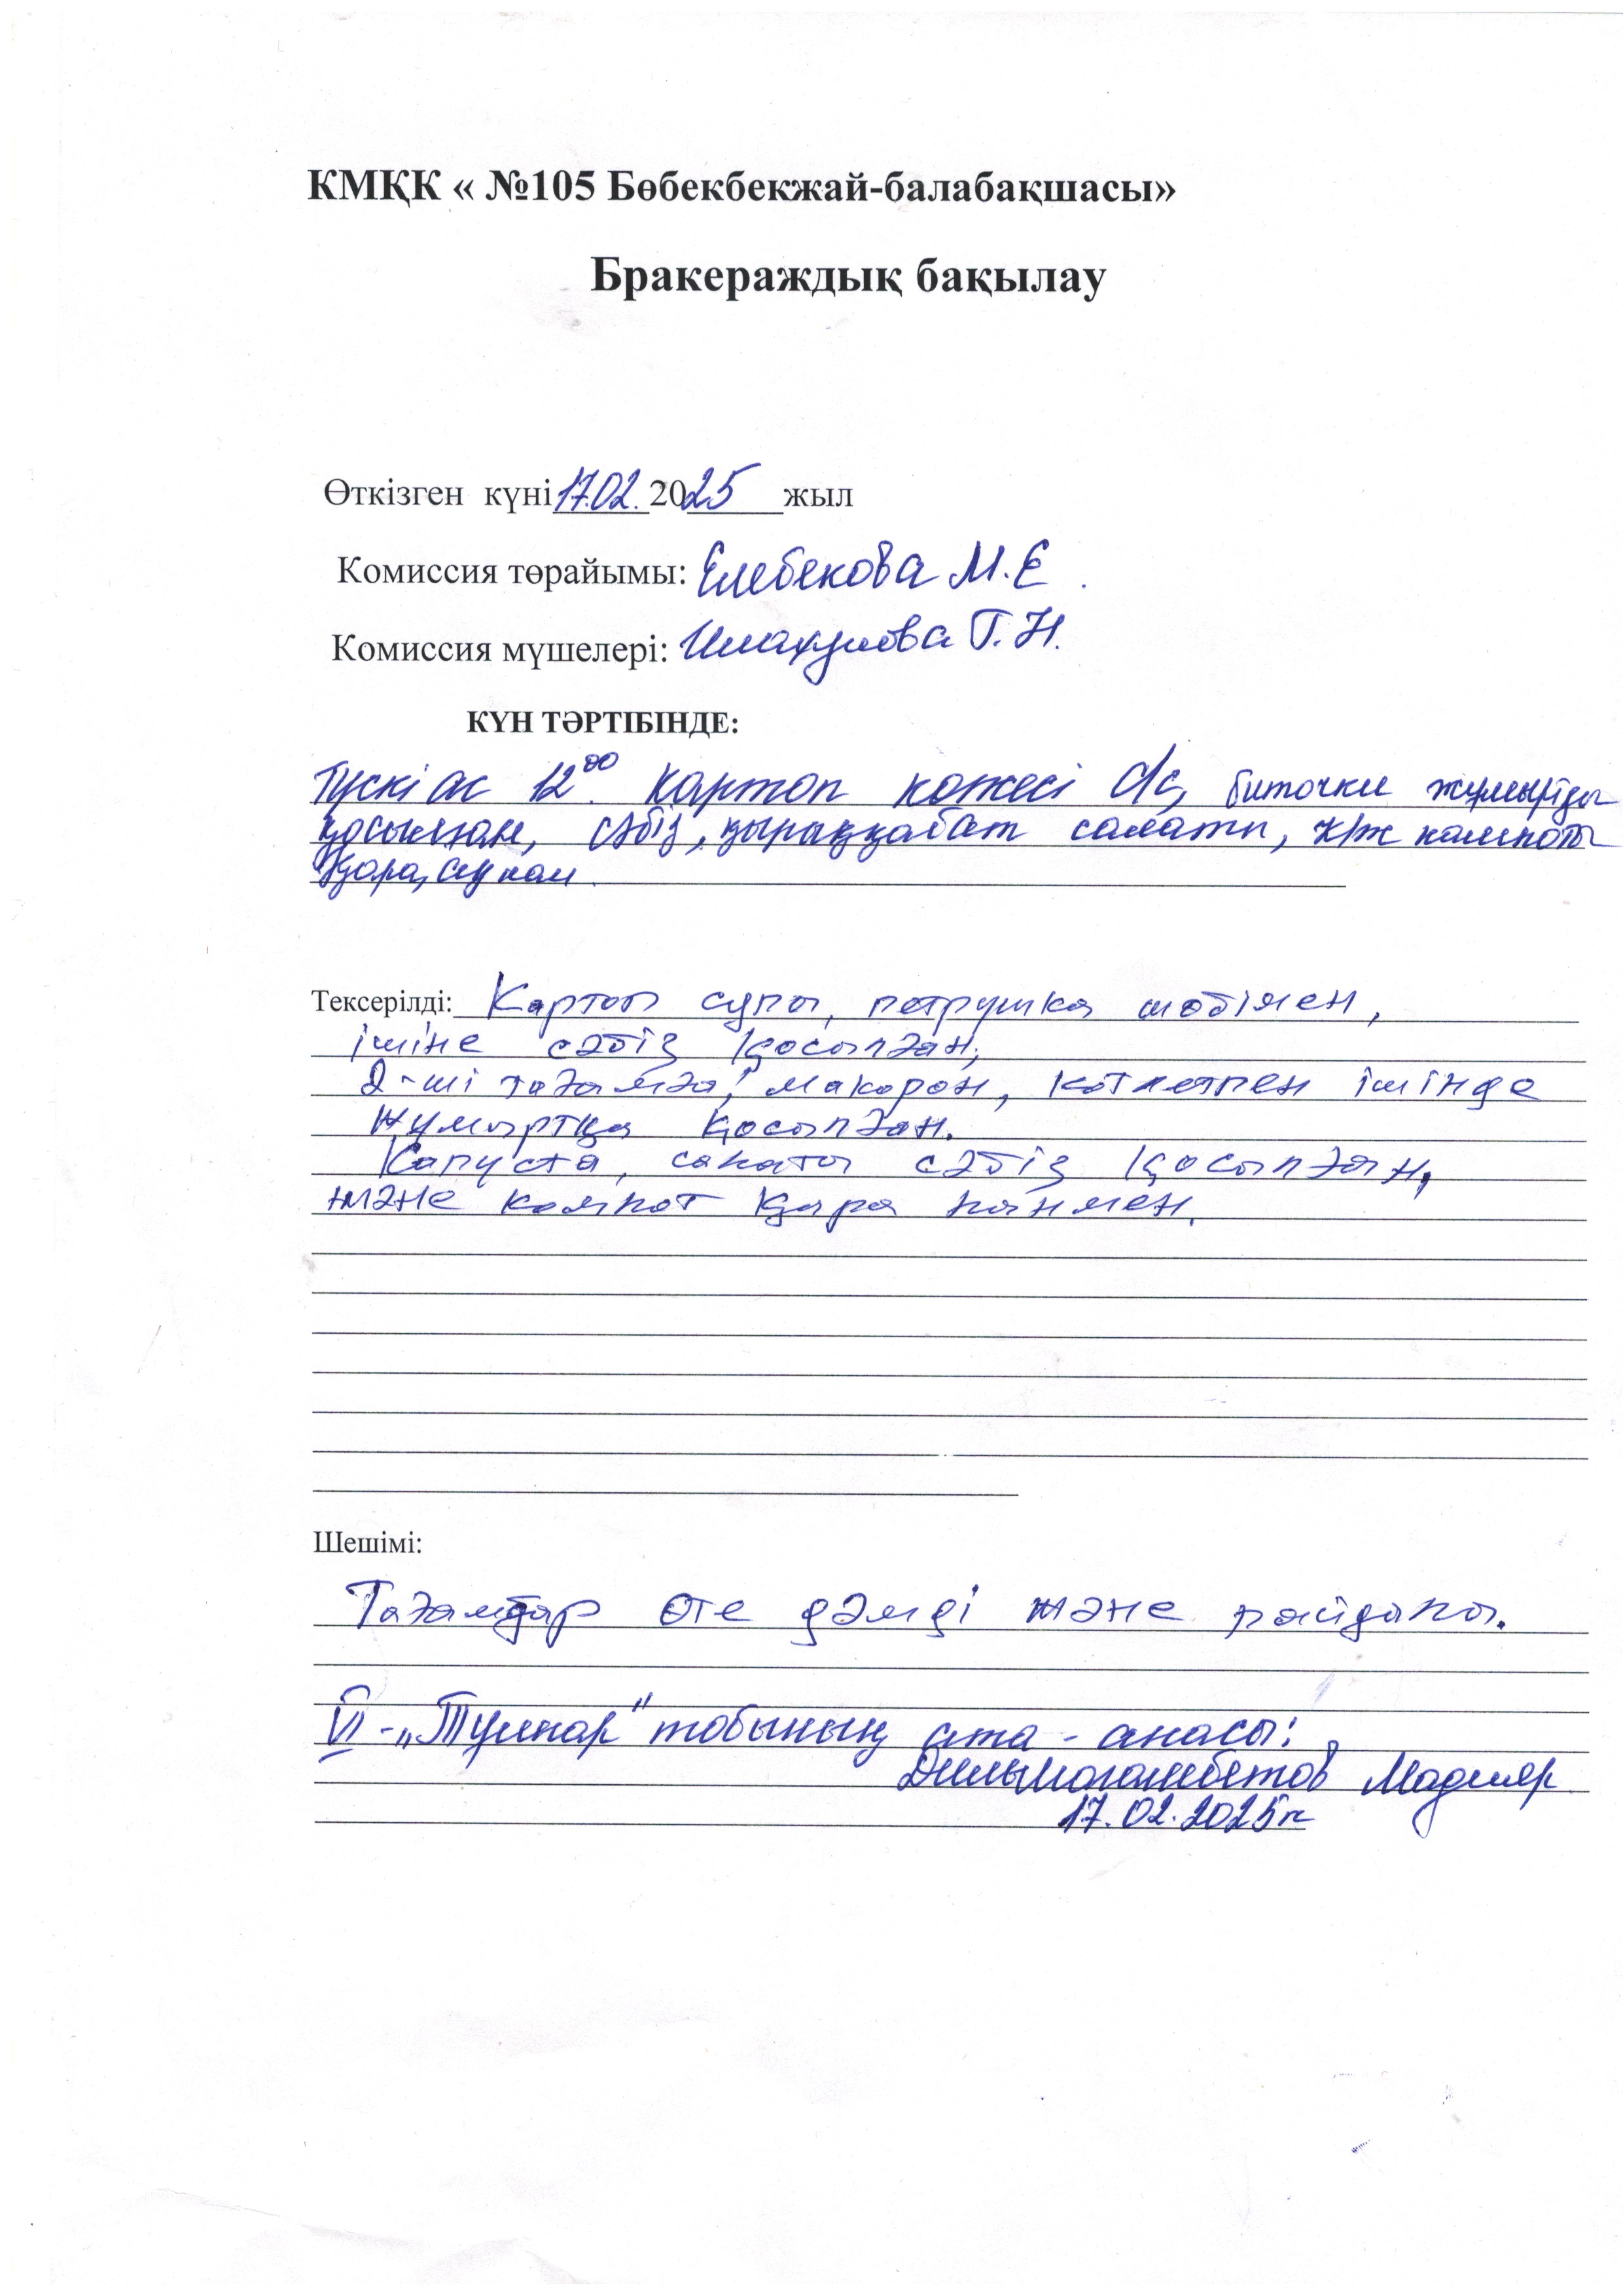 КМҚК « №105 Бөбекбекжай-балабақшасы»
Бракераждық бақылау
Өткізген күні 17.02. 2025 жыл
Комиссия төрайымы: Елебекова М.Е.
Комиссия мүшелері: Т.Н.
КҮН ТӘРТІБІНДЕ:
Түскі ас 12⁰⁰. Картоп көжесі с/с, биточки
қосылған, сәбіз, қырыққабат салаты, к/ж компоты
Қара,
Тексерілді: Картоп супы, петрушка шөбімен,
ішіне сәбіз қосылған,
2-ші тағамға, макорон, котлетпен ішінде
жұмыртқа қосылған.
Капуста, салаты сәбіз қосылған,
және компот қара нанмен.
Шешімі:
Тағамдар өте дәмді және пайдалы.
VI - „Тұлпар" тобының ата - анасы:
Дильмагамбетов Мадияр
17.02.2025ж